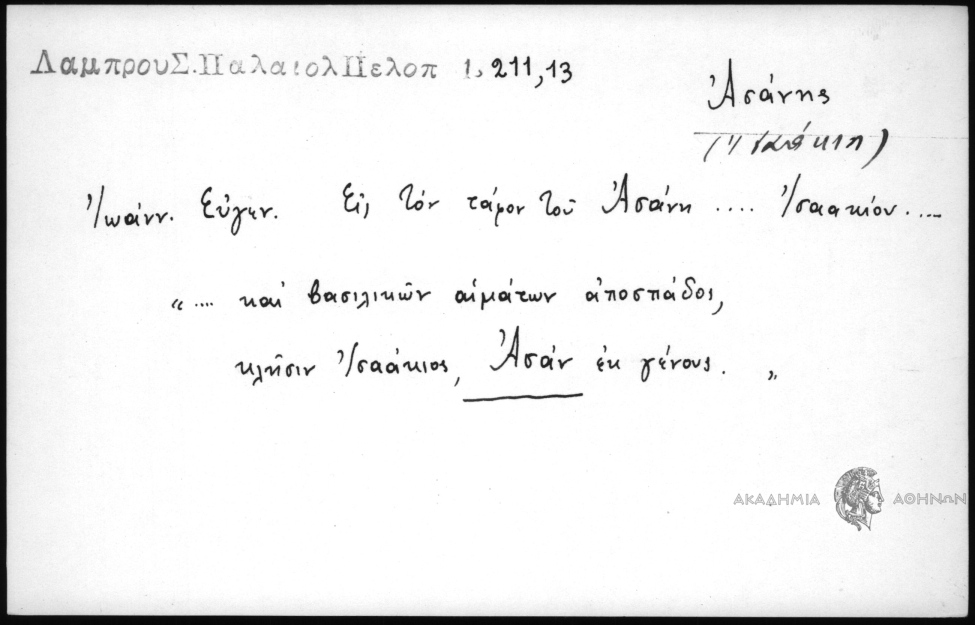 ΛαμπρουΣ.ΠαλαιολΠελοπ 1, 211,13
Ἀσάνης
(Ἰσαάκιος)
Ἰωάνν. Εὐγεν. Εἰς τόν τάφον τοῦ Ἀσάνη .... Ἰσαακίου ....
« .... καί βασιλικῶν αἱμάτων ἀποσπάδος,
κλῆσιν Ἰσαάκιος, Ἀσάν ἐκ γένους. »
ΑΚΑΔΗΜΙΑ ΑΘΗΝΩΝ